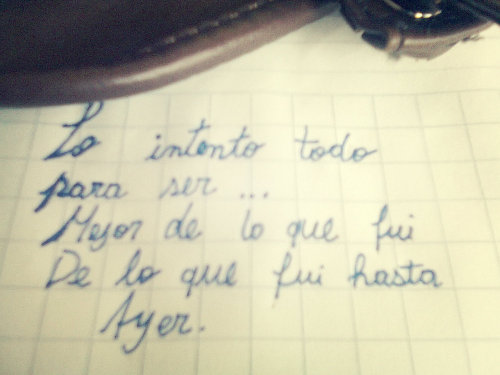 Lo intento todo
para ser ...
Mejor de lo que fui
De lo que fui hasta
Ayer.